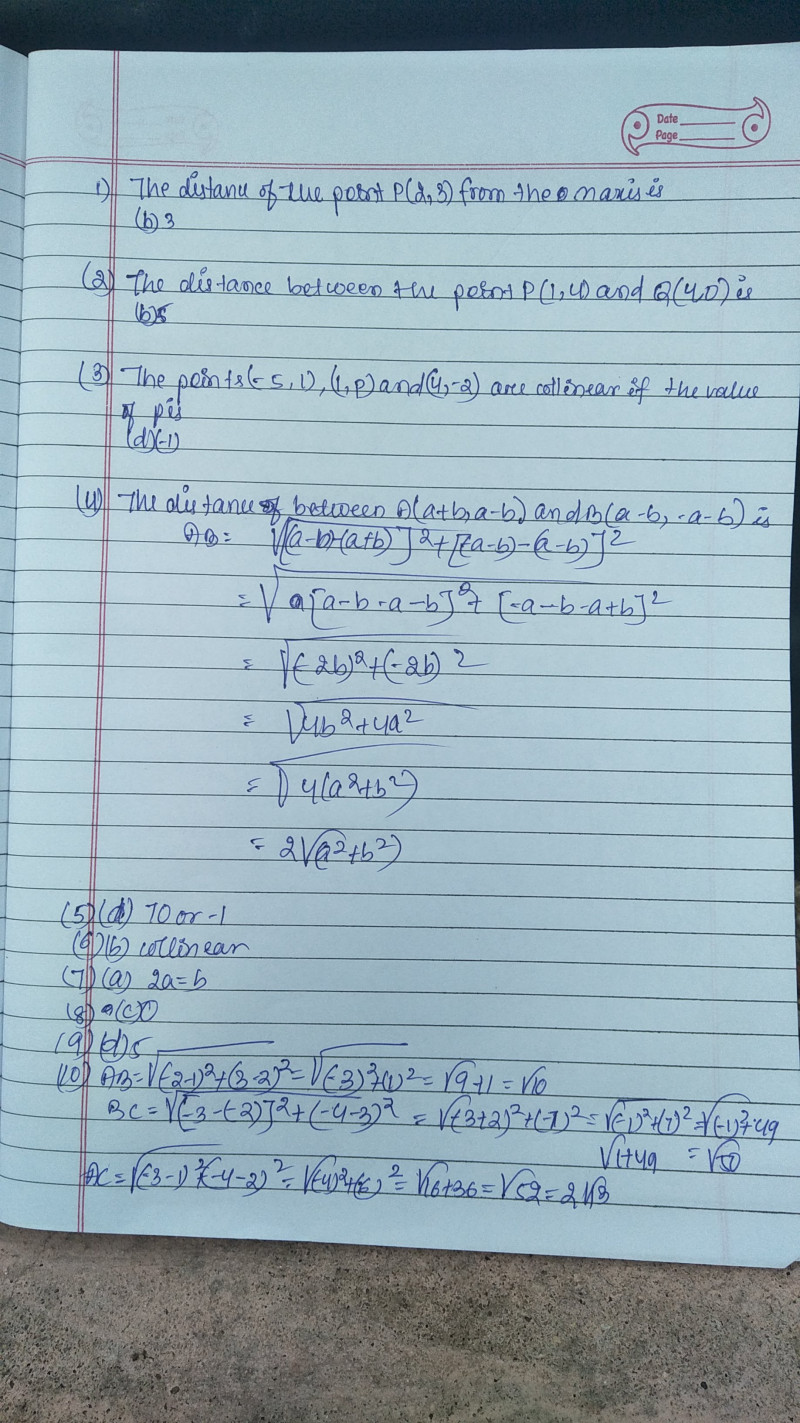 Date
Page
1) The distance of the point P(2,3) from the x axis is
(b) 3
(2) The distance between the point P(1,4) and Q(4,0) is
(b) 5
(3) The points (-5,1), (1,p) and (4,-2) are collinear if the value
of p is
(d) (-1)
(4) The distance between A(a+b, a-b) and B(a-b, -a-b) is
AB = √[(a-b)-(a+b)]²+[(-a-b)-(a-b)]²
= √[a-b-a-b]²+[-a-b-a+b]²
= √(-2b)²+(-2b)²
= √4b²+4a²
= √4(a²+b²)
= 2√(a²+b²)
(5) (d) 10 or -1
(6) (b) collinear
(7) (a) 2a=b
(8) (c)
(9) (d) 5
(10) AB = √(-2-1)²+(3-2)² = √(-3)²+(1)² = √9+1 = √10
BC = √[-3-(-2)]²+(-4-3)² = √(-3+2)²+(-7)² = √(-1)²+(7)² = √(-1)²+49
√1+49 = √50
AC = √(-3-1)²(-4-2)² = √(-4)²+(6)² = √16+36 = √52 = 2√13